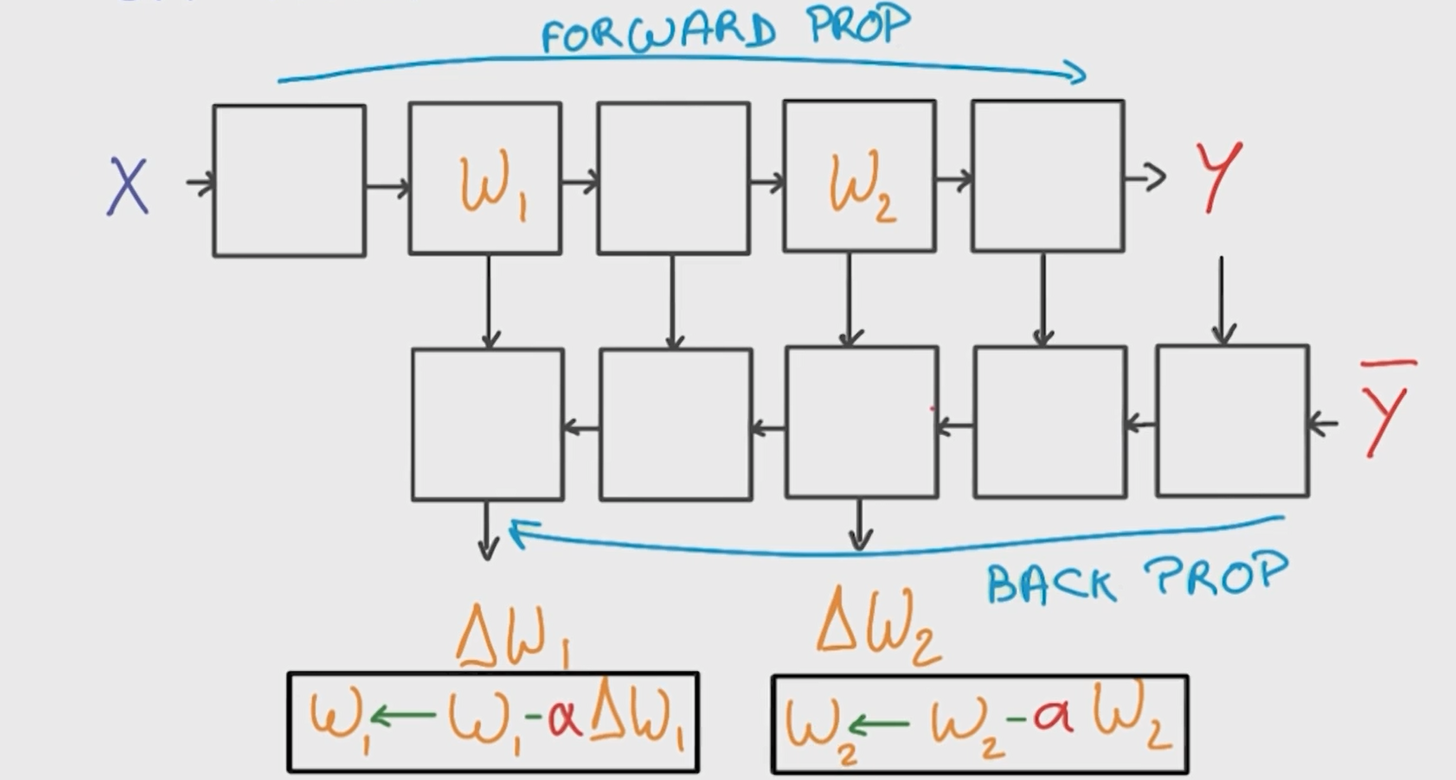 FORWARD PROP
X W₁ W₂ Y
Y̅
BACK PROP
ΔW₁ ΔW₂
W₁ ← W₁ - α ΔW₁
W₂ ← W₂ - α W₂